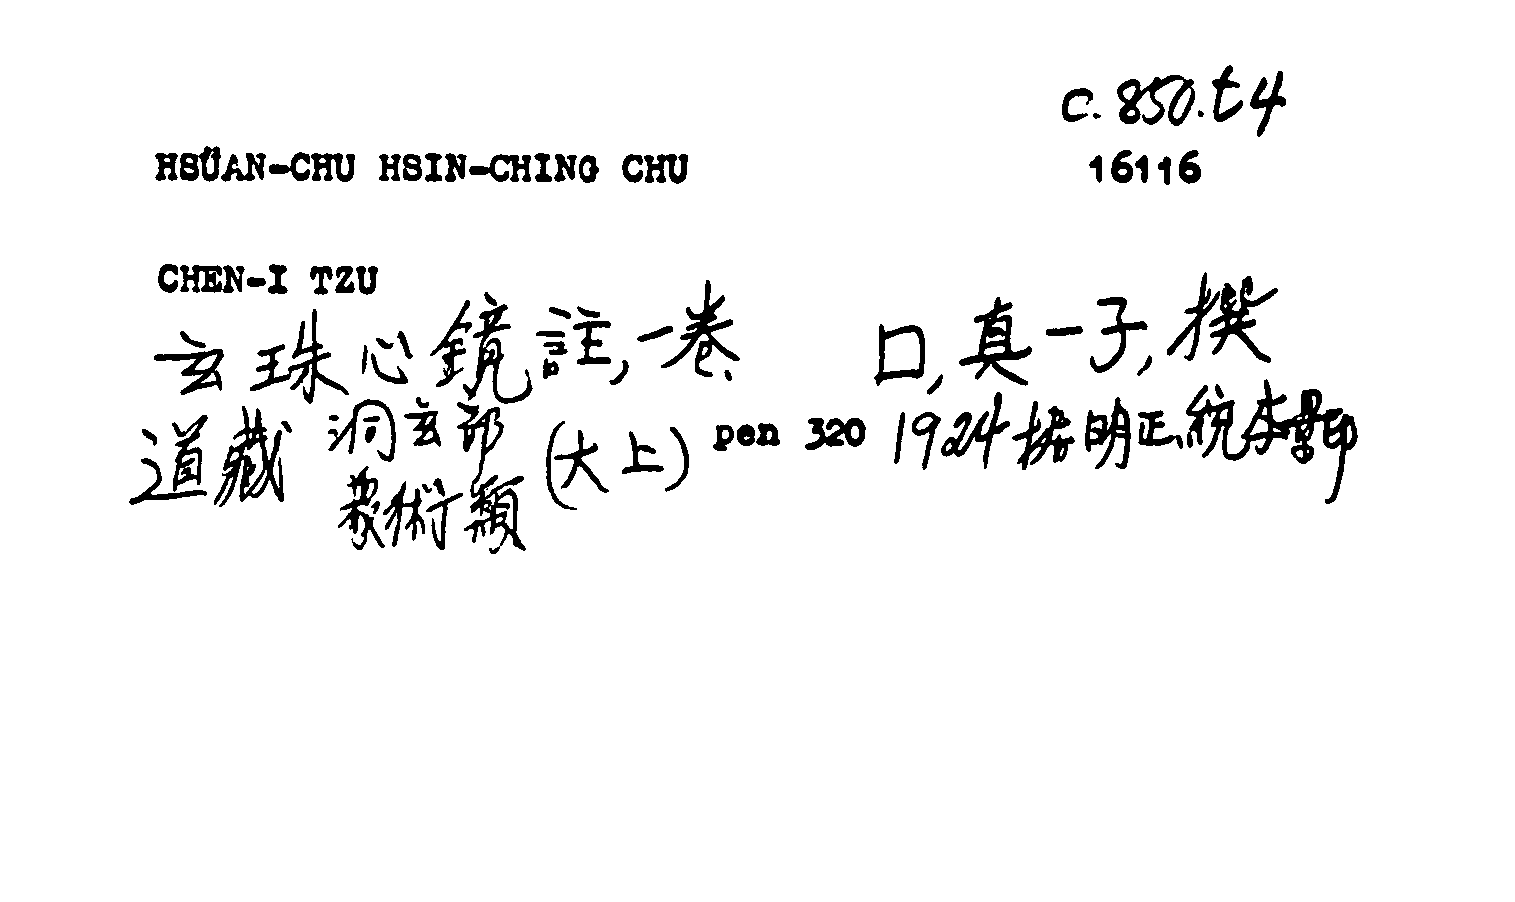 c. 850.t4
HSÜAN-CHU HSIN-CHING CHU 16116
CHEN-I TZU
玄珠心鏡註, 一卷. 口, 真一子, 撰
道藏 洞玄部 (大上) pen 320 1924 據明正統本景印
衆術類